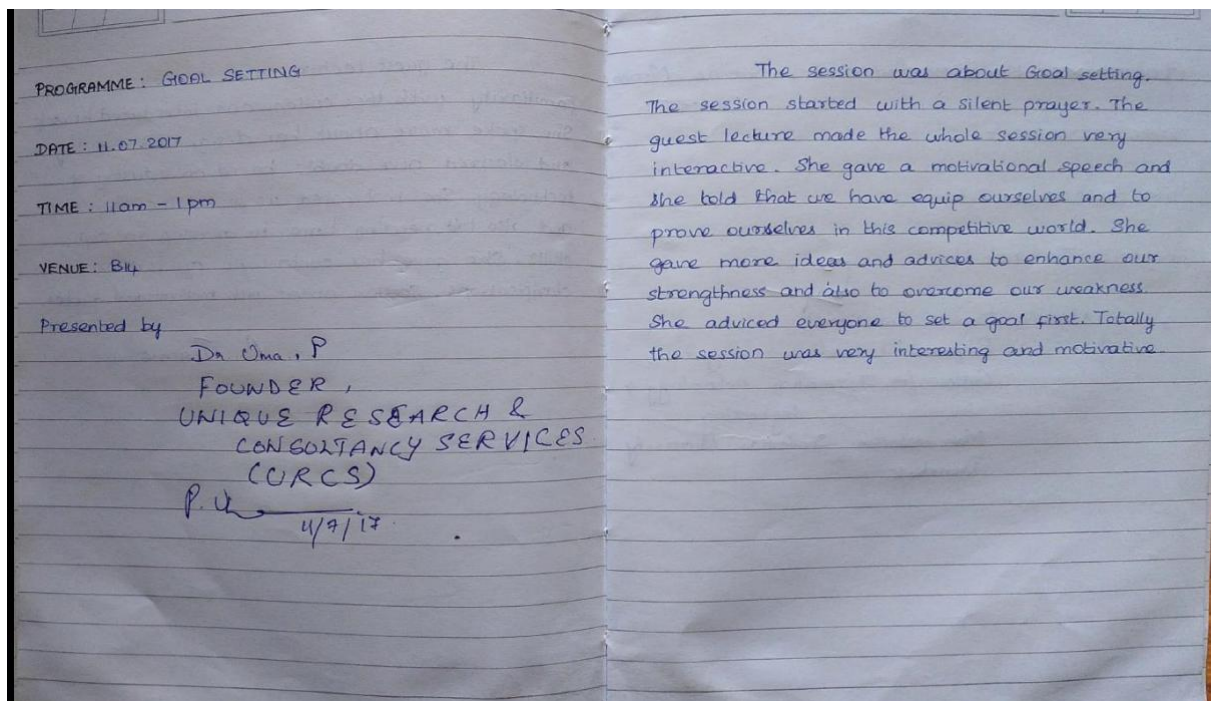 PROGRAMME : GOAL SETTING
DATE : 11.07.2017
TIME : 11am - 1 pm
VENUE : B14
Presented by
Dr Uma. P
FOUNDER,
UNIQUE RESEARCH &
CONSULTANCY SERVICES
(URCS)
P. U
11/7/17
The session was about Goal setting.
The session started with a silent prayer. The
guest lecture made the whole session very
interactive. She gave a motivational speech and
she told that we have equip ourselves and to
prove ourselves in this competitive world. She
gave more ideas and advices to enhance our
strengthness and also to overcome our weakness.
She adviced everyone to set a goal first. Totally
the session was very interesting and motivative.